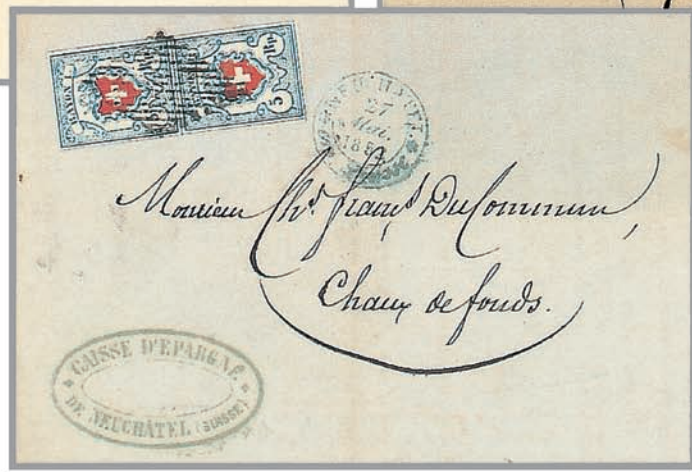 RAYON I.
5 Rp.
NEUCHATEL
27
185
SUISSE
Monsieur Chs. franç.s DuCommun,
Chaux de fonds.
CAISSE D'EPARGNE
DE NEUCHÂTEL (SUISSE)